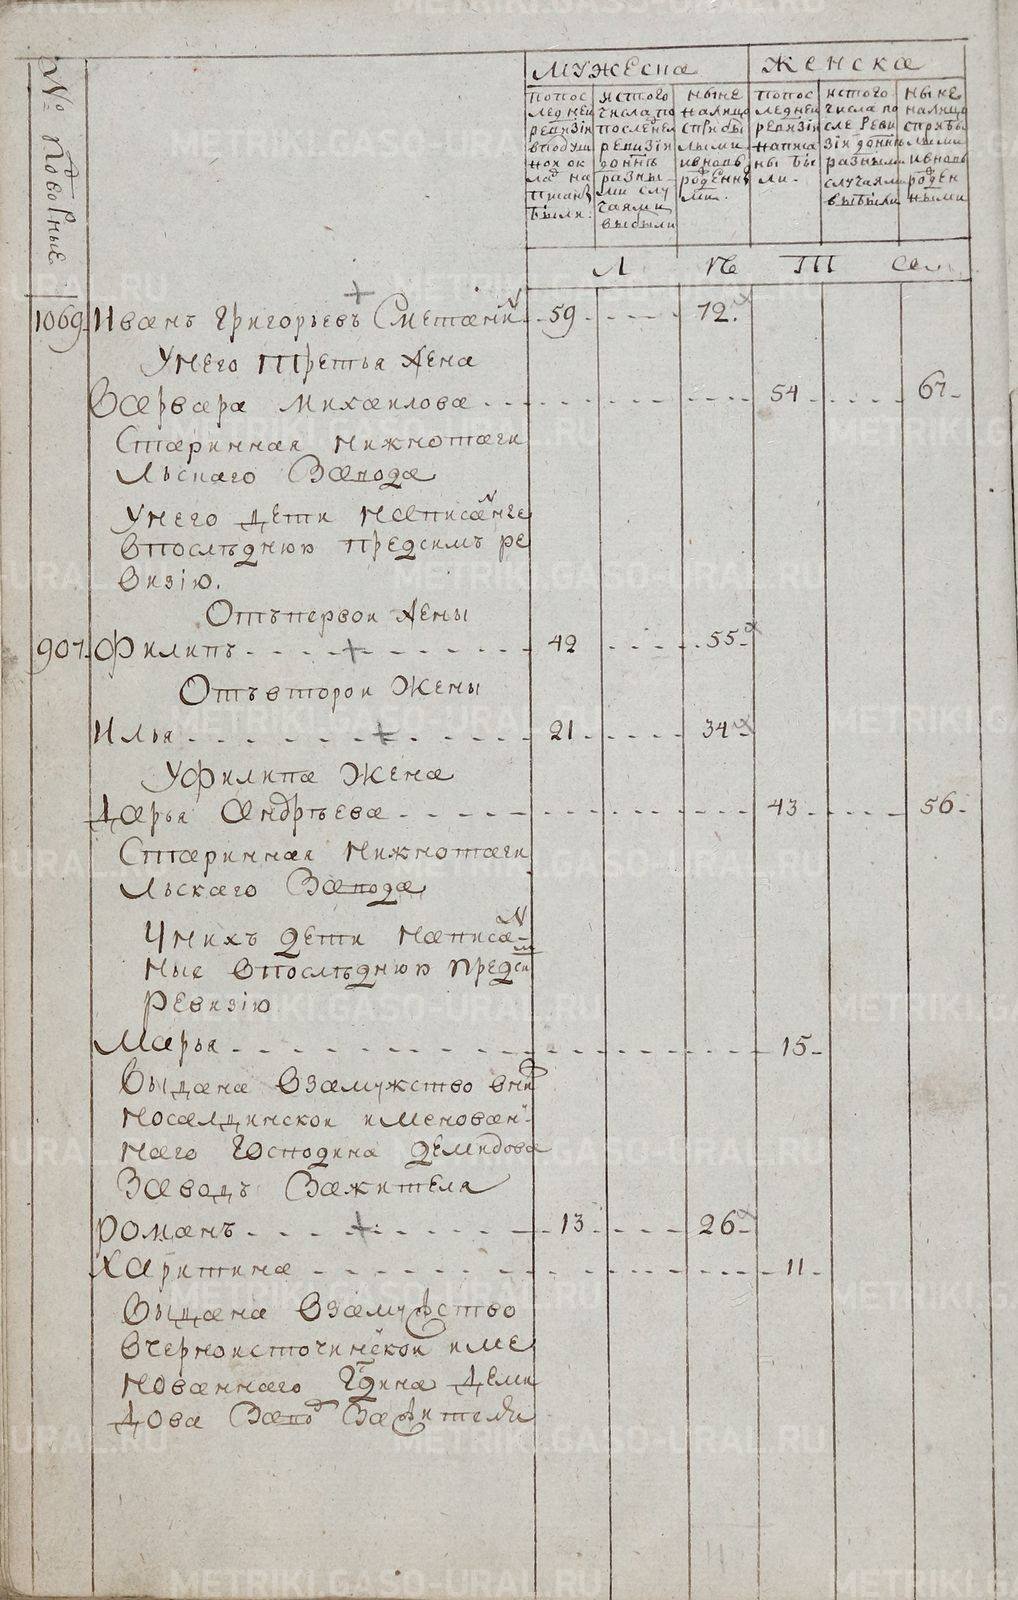 № Подворные
мужеска
женска
попос
ледней
ревизiи
вподуш
ном ок
ладе на
писаны
были
истого
числа по
послѣдней
ревизiи
донынѣ
разны-
ми слу
чаями
выбыли
ныне
налицо
сприбы
лыми
ивновь
рожденны
ми.
попос
ледней
ревизiи
написа
ны бы
ли.
истого
числа по
сле реви
зiи донынѣ
разными
случаями
выбыли
ныне
налицо
сприбы
лыми
ивновь
рожден
ными
Л ѣ Т Сем
1069 Иванъ Григорьевъ Сметанин 59 72.
Унего третья жена
Варвара михаилова 54 67
Старинная нижнотаги
льскаго Завода
Унего дети написанные
впослѣднюю предсимъ ре
визiю.
Отъпервои жены
907 Филипъ 42 55
Отъвторои жены
Илья 21 34
Уфилипа жена
Дарья андрѣева 43 56
Старинная нижнотаги
льскаго Завода
Унихъ дети написа-
ные впослѣднюю предсим
ревизiю
Марья 15
Выдана взамужство вниж
носалдинскои именован
наго господина демидова
Заводъ Зажителя
романъ 13 26
харитина 11
Выдана взамужство
вчерноисточинскои име
нованнаго Гдина Деми
дова Завод Зажителя